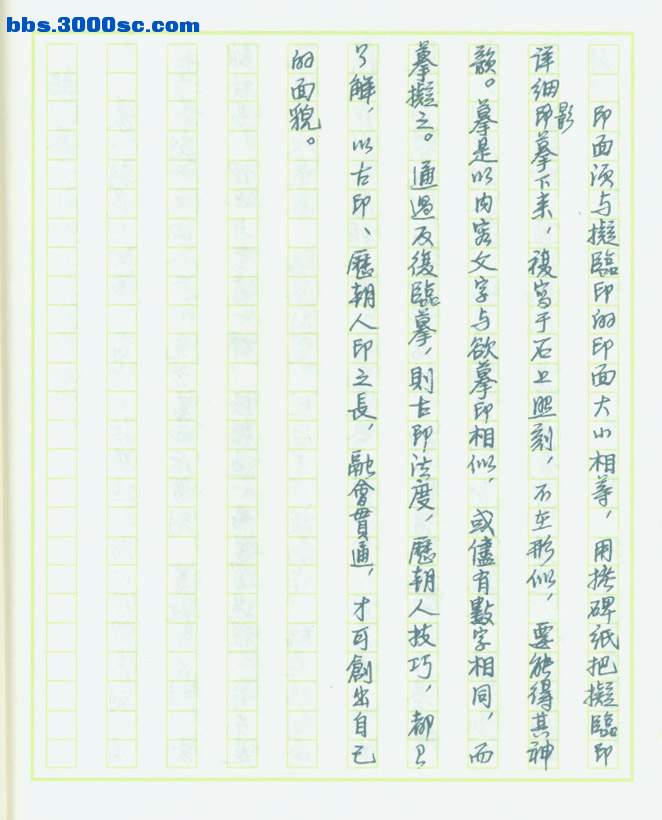 bbs.3000sc.com
印面须与擬臨印的印面大小相等，用拷碑纸把擬臨印
详细影印摹下来，複寫于石上照刻，不在形似，要能得其神
韻。摹是以内容文字与欲摹印相似，或儘有數字相同，而
摹擬之。通過反復臨摹，則古印法度，歷朝人技巧，都已
了解，以古印、歷朝人印之長，融會貫通，才可創出自己
的面貌。